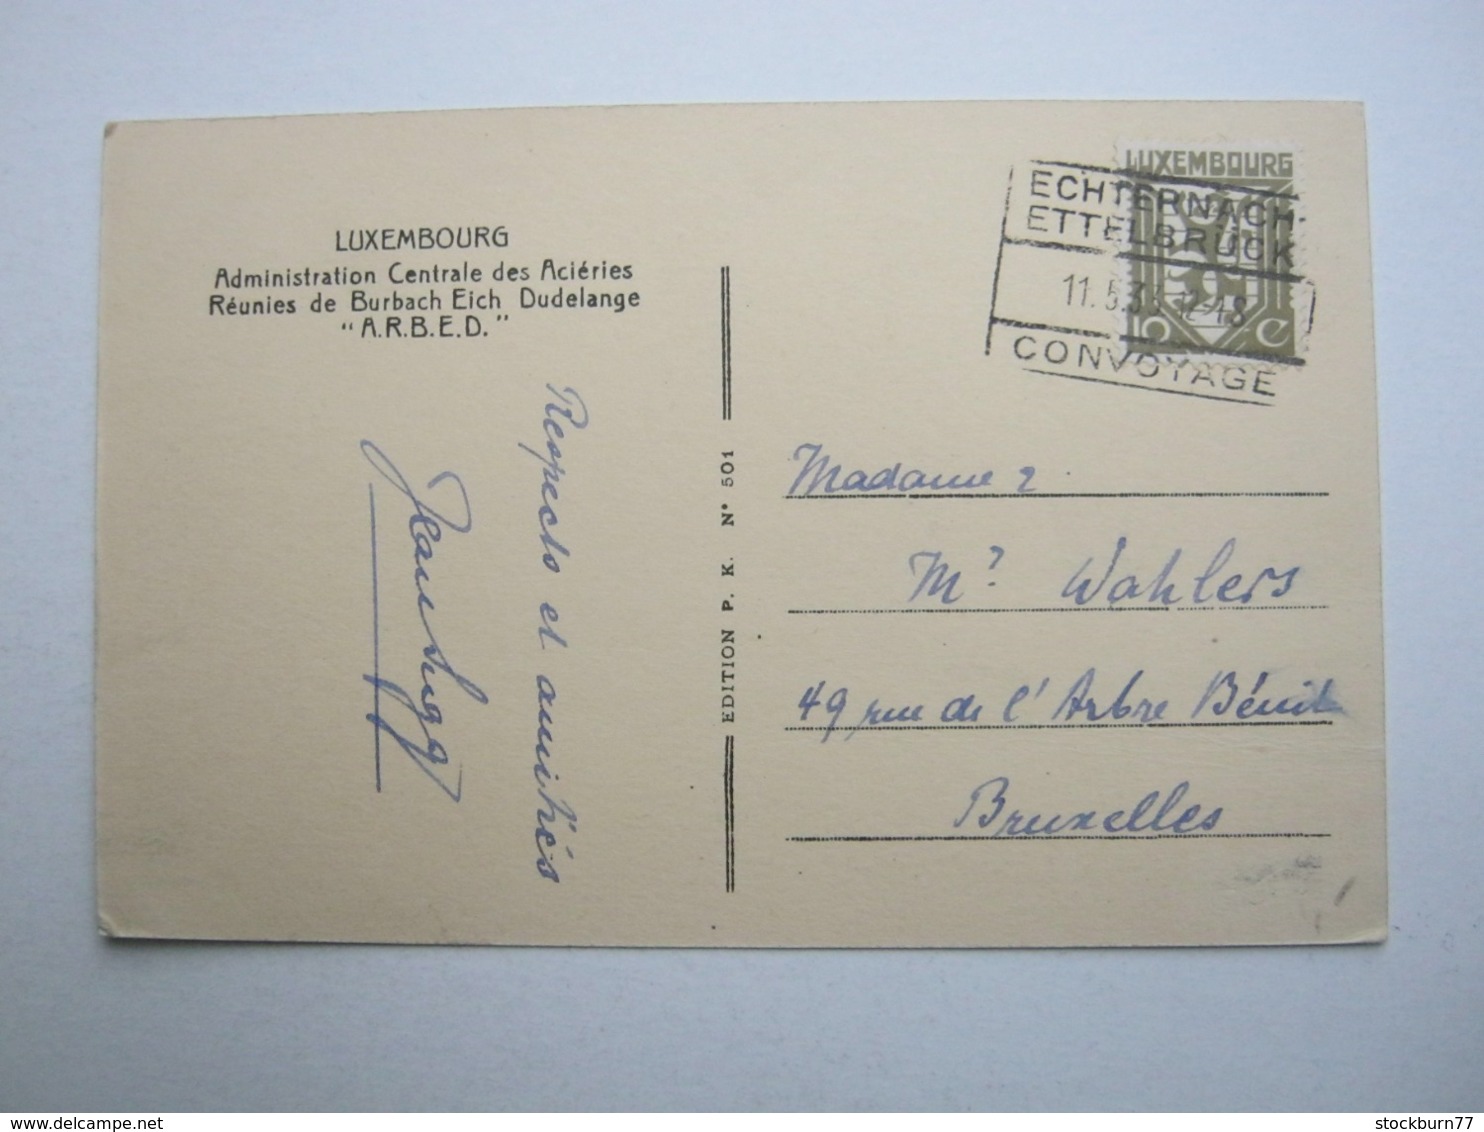 LUXEMBOURG
Administration Centrale des Aciéries
Réunies de Burbach Eich Dudelange
"A.R.B.E.D."
Respects et amitiés
EDITION P. K. N° 501
LUXEMBOURG
10 c
ECHTERNACH-
ETTELBRÜCK
11.5.33 12-18
CONVOYAGE
Madame
Mr Wahlers
49 rue de l'Arbre Bénit
Bruxelles
delcampe.net
stockburn77